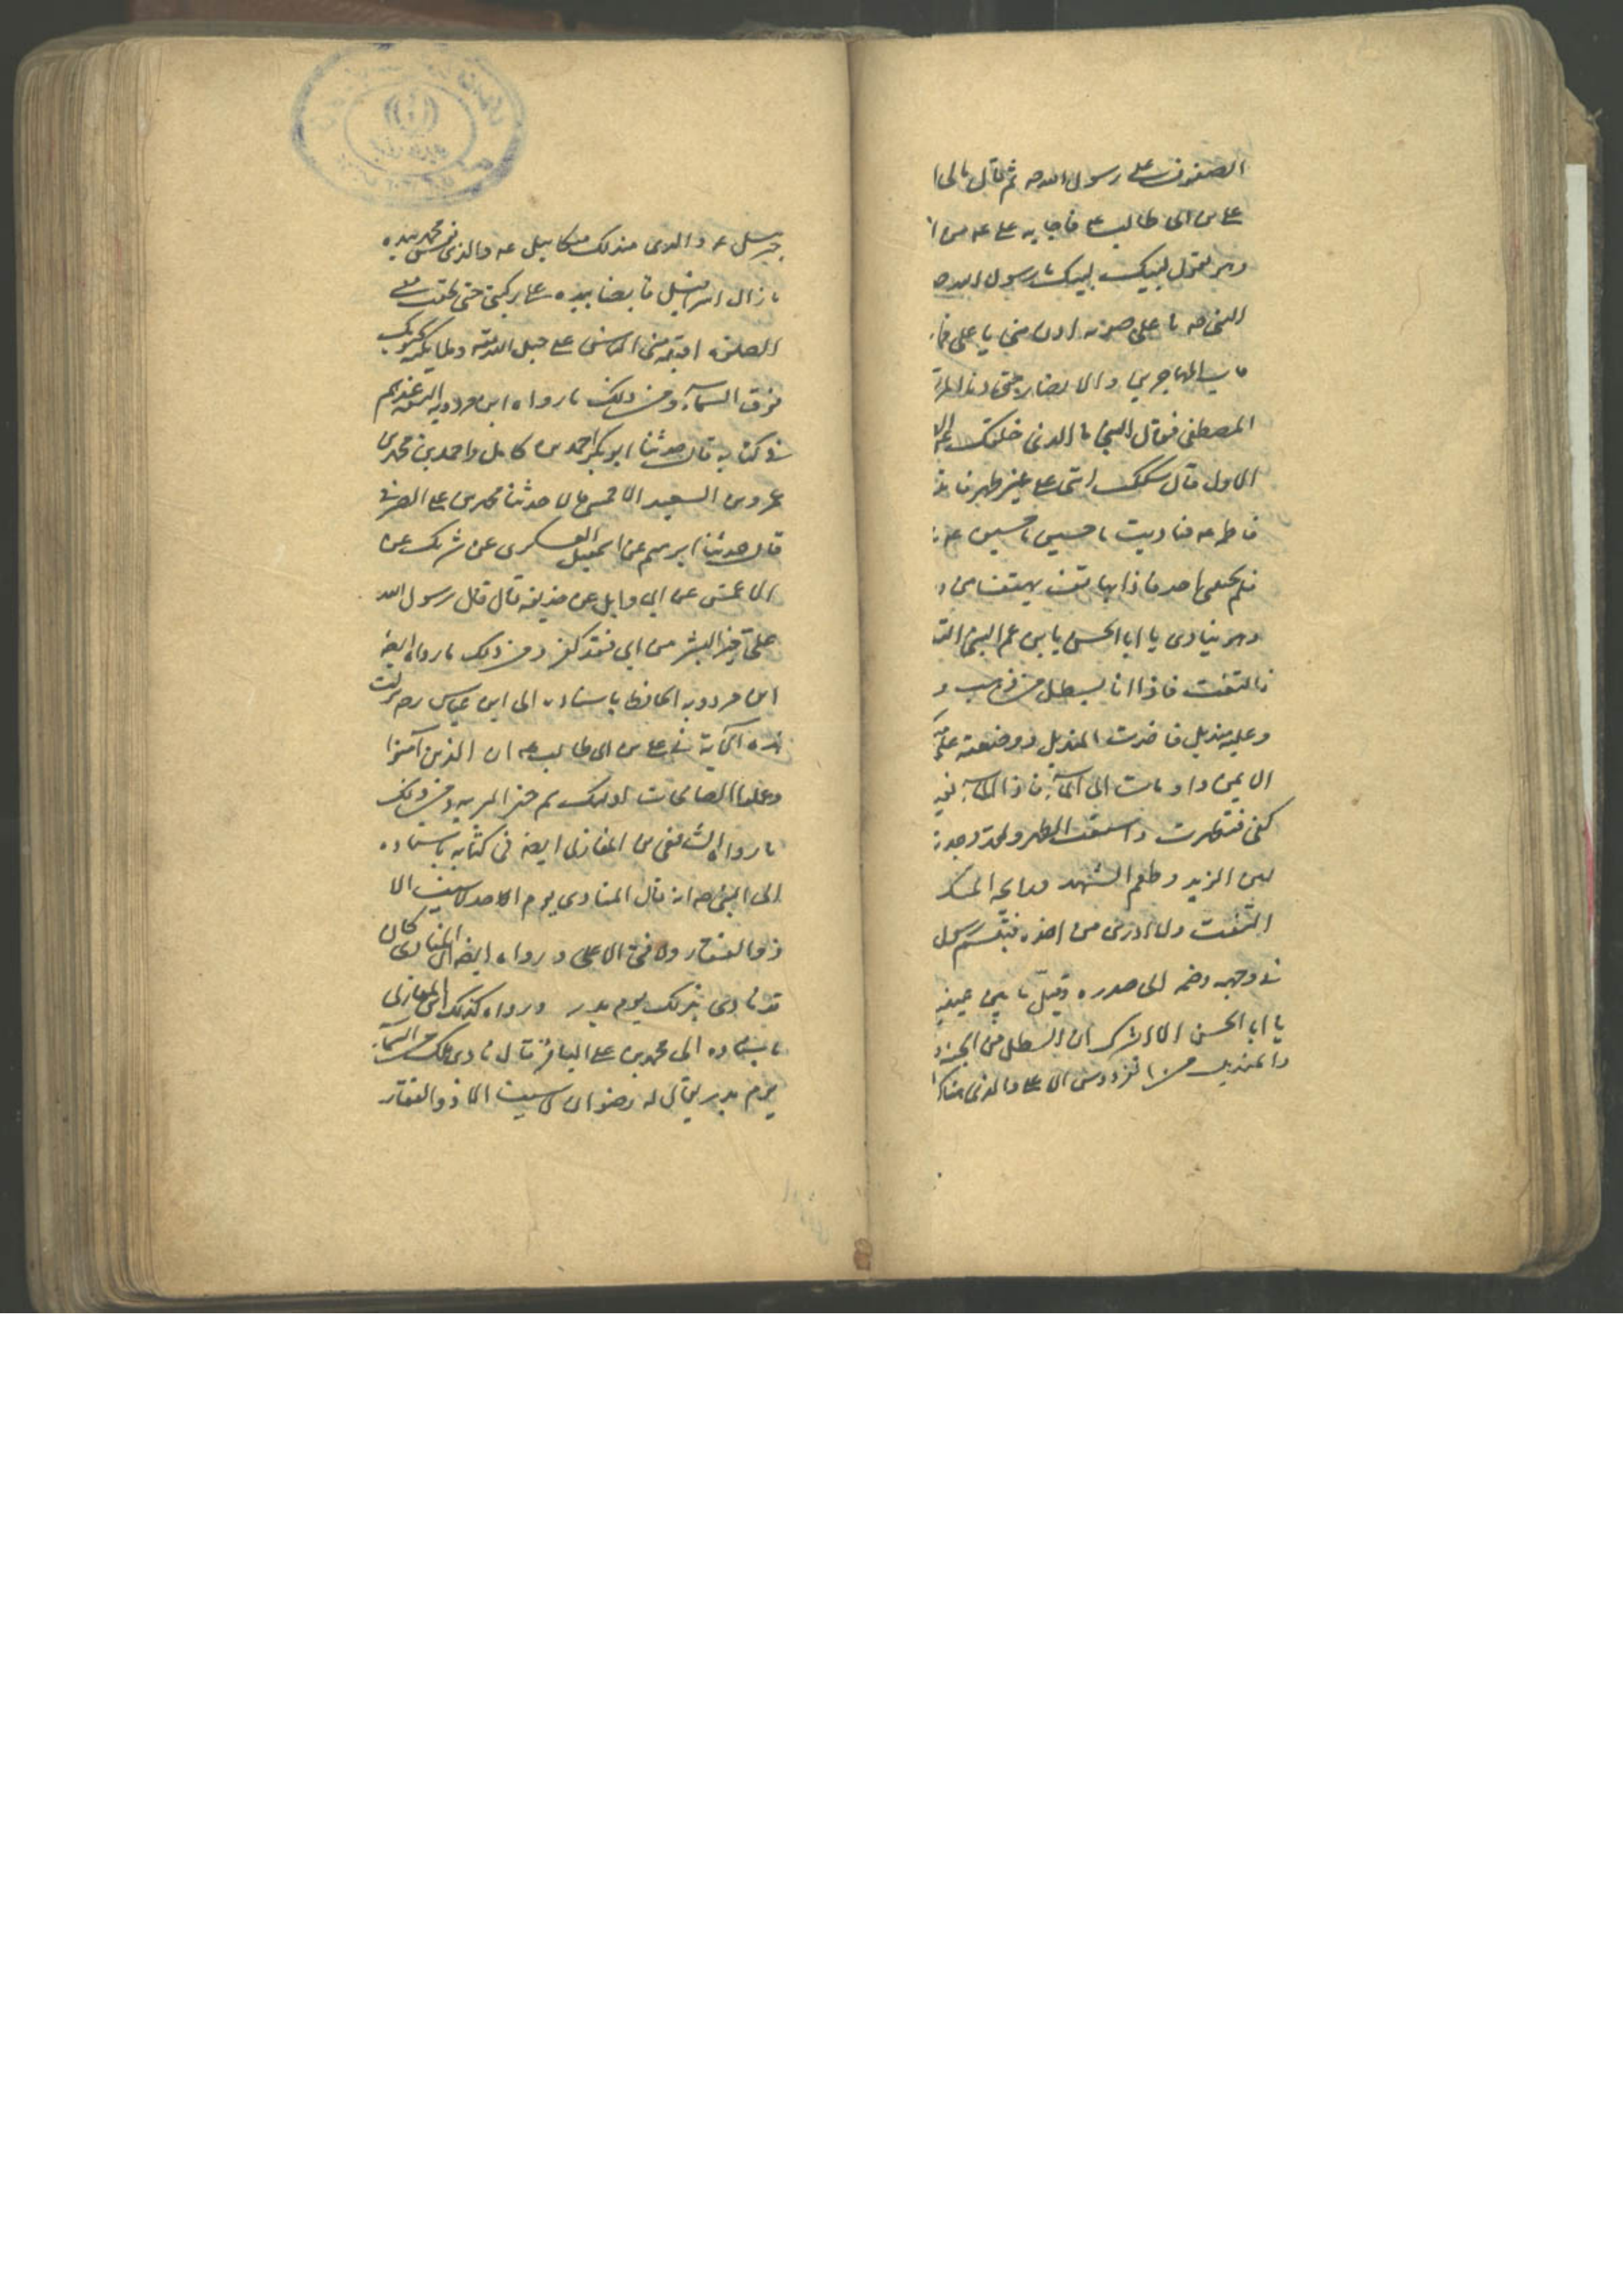 الصفوف على رسول الله صه ثم قال مالى ا
على بن ابى طالب ع فاجابه على عه من ا
وهو يقول لبيك لبيك يا رسول الله صه
النبى صه باعلى صوته ادن منى يا على فما
المهاجرين والانصار حتى دنا المر
المصطفى فقال النبى ما الذى خلفك عن الا
الاول قال شككت انى على غير طهر فا
فاطمه عه فناديت يا حسين يا حسين عه
فلم يجبنى احد فاذا بهاتف يهتف من و
وهو ينادى يا ابا الحسن يا بن عم النبى الت
فالتفت فاذا انا بسطل من ذهب و
وعليه منديل فاخذت المنديل ووضعته على
الايمن واومات الى الماء فاذا الماء
كفى فتطهرت واسبغت الطهر ولقد وجدت
لين الزبد وطعم الشهد ورايحة المسك
التفت ولا ادرى من اخذه فتبسم رسول
فى وجهه وضمه الى صدره وقبل ما بين عينيه
يا ابا الحسن الا ابشرك ان السطل من الجنة و
والمنديل من الفردوس الاعلى والذى
جبرئيل عه والذى مندلك ميكائيل عه والذى نفس محمد بيده
ما زال اسرافيل قابضا بيده على ركبتى حتى لحقت معى
الصلوة الناس على الله وملائكته يحبونك
فوق السماء ومن ذلك ما رواه ابن مردويه
فى كتابه قال حدثنا ابو بكر احمد بن كامل واحمد بن محمد بن
عمرو بن السعيد الاخمسى قالا حدثنا محمد بن على
قال حدثنا ابرهيم عن اسمعيل العسكرى عن شريك عن
الاعمش عن ابى وايل عن حذيفه قال قال رسول الله
على خير البشر من ابى فقد كفر ومن ذلك ما رواه ايضا
ابن مردويه الحافظ باسناده الى ابن عباس رضه نزلت
هذه الاية فى على بن ابى طالب عه ان الذين آمنوا
وعملوا الصالحات اولئك هم خير البريه ومن ذلك
ما رواه الشافعى بن المغازلى ايضا فى كتابه باسناده
الى النبى صه انه قال المنادى يوم الاحد لا سيف الا
ذو الفقار ولا فتى الا على و رواه ايضا ان المنادى كان
قد نادى بذلك يوم بدر ورواه كذلك ابن المغازلى
باسناده الى محمد بن على الباقر قال نادى ملك من السماء
يوم بدر يقال له رضوان لا سيف الا ذو الفقار